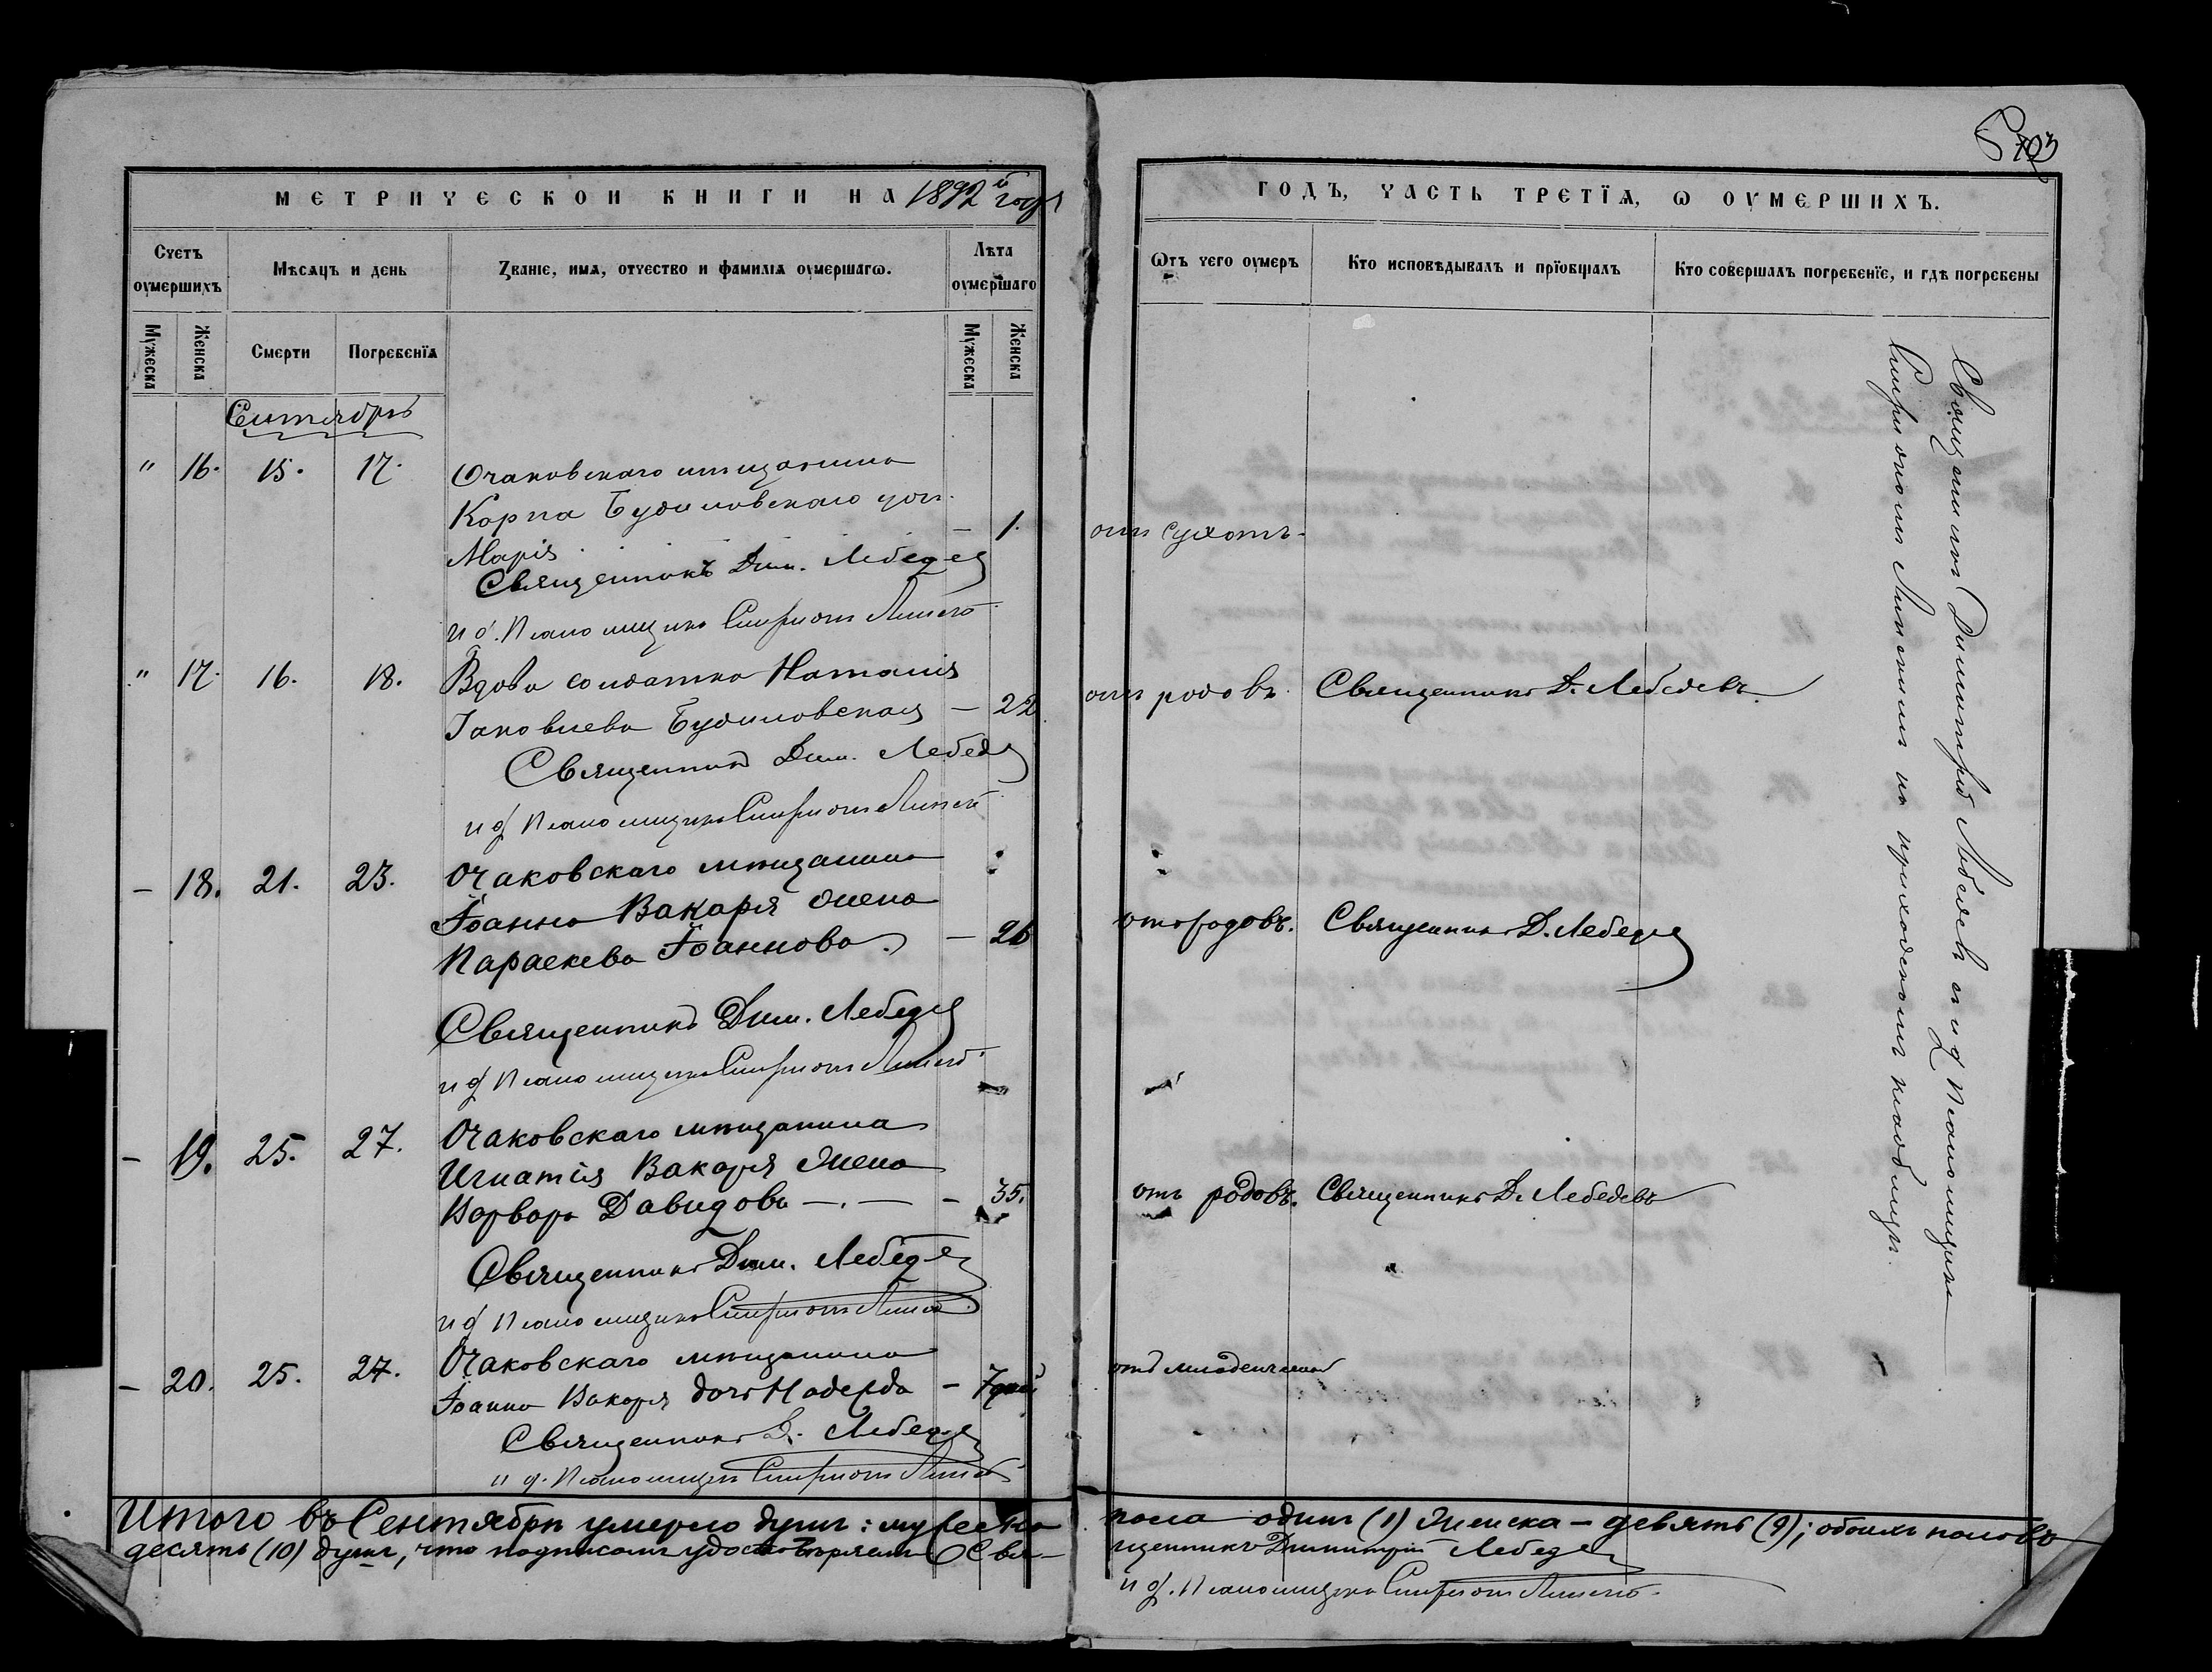 МЕТРИЧЕСКОЙ КНИГИ НА 1892й годъ
Счетъ оумершихъ
Мѣсяцъ и день
Званіе, имя, отчество и фамилія оумершагω.
Лѣта оумершаго
Мужеска
Женска
Смерти
Погребенїя
Мужеска
Женска
Сентябрь
" 16. 15. 17. Очаковскаго мѣщанина
Карпа Будиловскаго дочь
Марія — 1.
Священникъ Дим. Лебедев
и д. Псаломщика Спиридонъ
" 17. 16. 18. Вдова солдатка Наталія
Іаковлева Будиловская — 22
Священникъ Дим. Лебедев
и д Псаломщика Спиридонъ
— 18. 21. 23. Очаковскаго мѣщанина
Іоанна Вакаря жена
Параскева Іоаннова. — 26
Священникъ Дим. Лебедев
и д Псаломщика Спиридонъ
— 19. 25. 27. Очаковскаго мѣщанина
Игнатія Вакаря жена
Варвара Давидова — . — — 35.
Священникъ Дим. Лебедев
и д Псаломщика Спиридонъ
— 20. 25. 27. Очаковскаго мѣщанина
Іоанна Вакаря дочь Надежда — 7 дней
Священникъ Д. Лебедев
и д. Псаломщика Спиридонъ
Итого въ Сентябрѣ умерло душъ: мужеска
десять (10) душъ, что подписомъ удостовѣряемъ Свя-
703
ГОДЪ, ЧАСТЬ ТРЕТЇЯ, Ѡ ОУМЕРШИХЪ.
Ѿтъ чего оумеръ
Кто исповѣдывалъ и прїобщалъ
Кто совершалъ погребенїе, и гдѣ погребены
отъ сухотъ.
отъ родовъ. Священникъ Д. Лебедевъ.
отъ родовъ. Священникъ Д. Лебедев
отъ родовъ. Священникъ Д. Лебедевъ
отъ младенческой
Священникъ Димитрій Лебедевъ съ и д Псаломщика
Спиридономъ на приходскомъ кладбищѣ.
пола одинъ (1) женска — девять (9); обоихъ половъ
щенникъ Димитрій Лебедев
и д. Псаломщика Спиридонъ